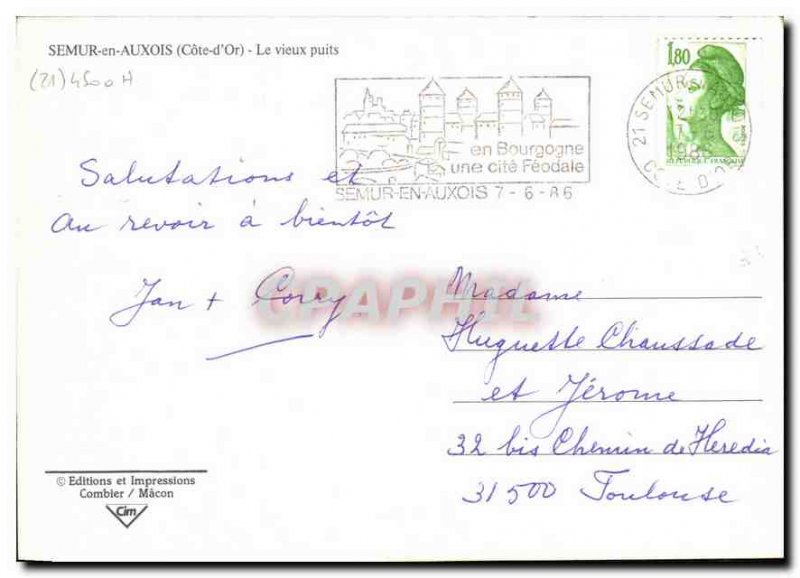 SEMUR-en-AUXOIS (Côte-d'Or) - Le vieux puits
(21) 4500 H
1,80
21 SEMUR
1986
CÔTE D'OR
REPUBLIQUE FRANÇAISE
en Bourgogne
une cité Féodale
SEMUR-EN-AUXOIS 7 - 6 - 86
Salutations et
au revoir à bientôt
Jan + Corry
CPAPHIL
Madame
Huguette Chaussade
et Jérome
32 bis Chemin de Heredia
31500 Toulouse
© Editions et Impressions
Combier / Mâcon
Cim